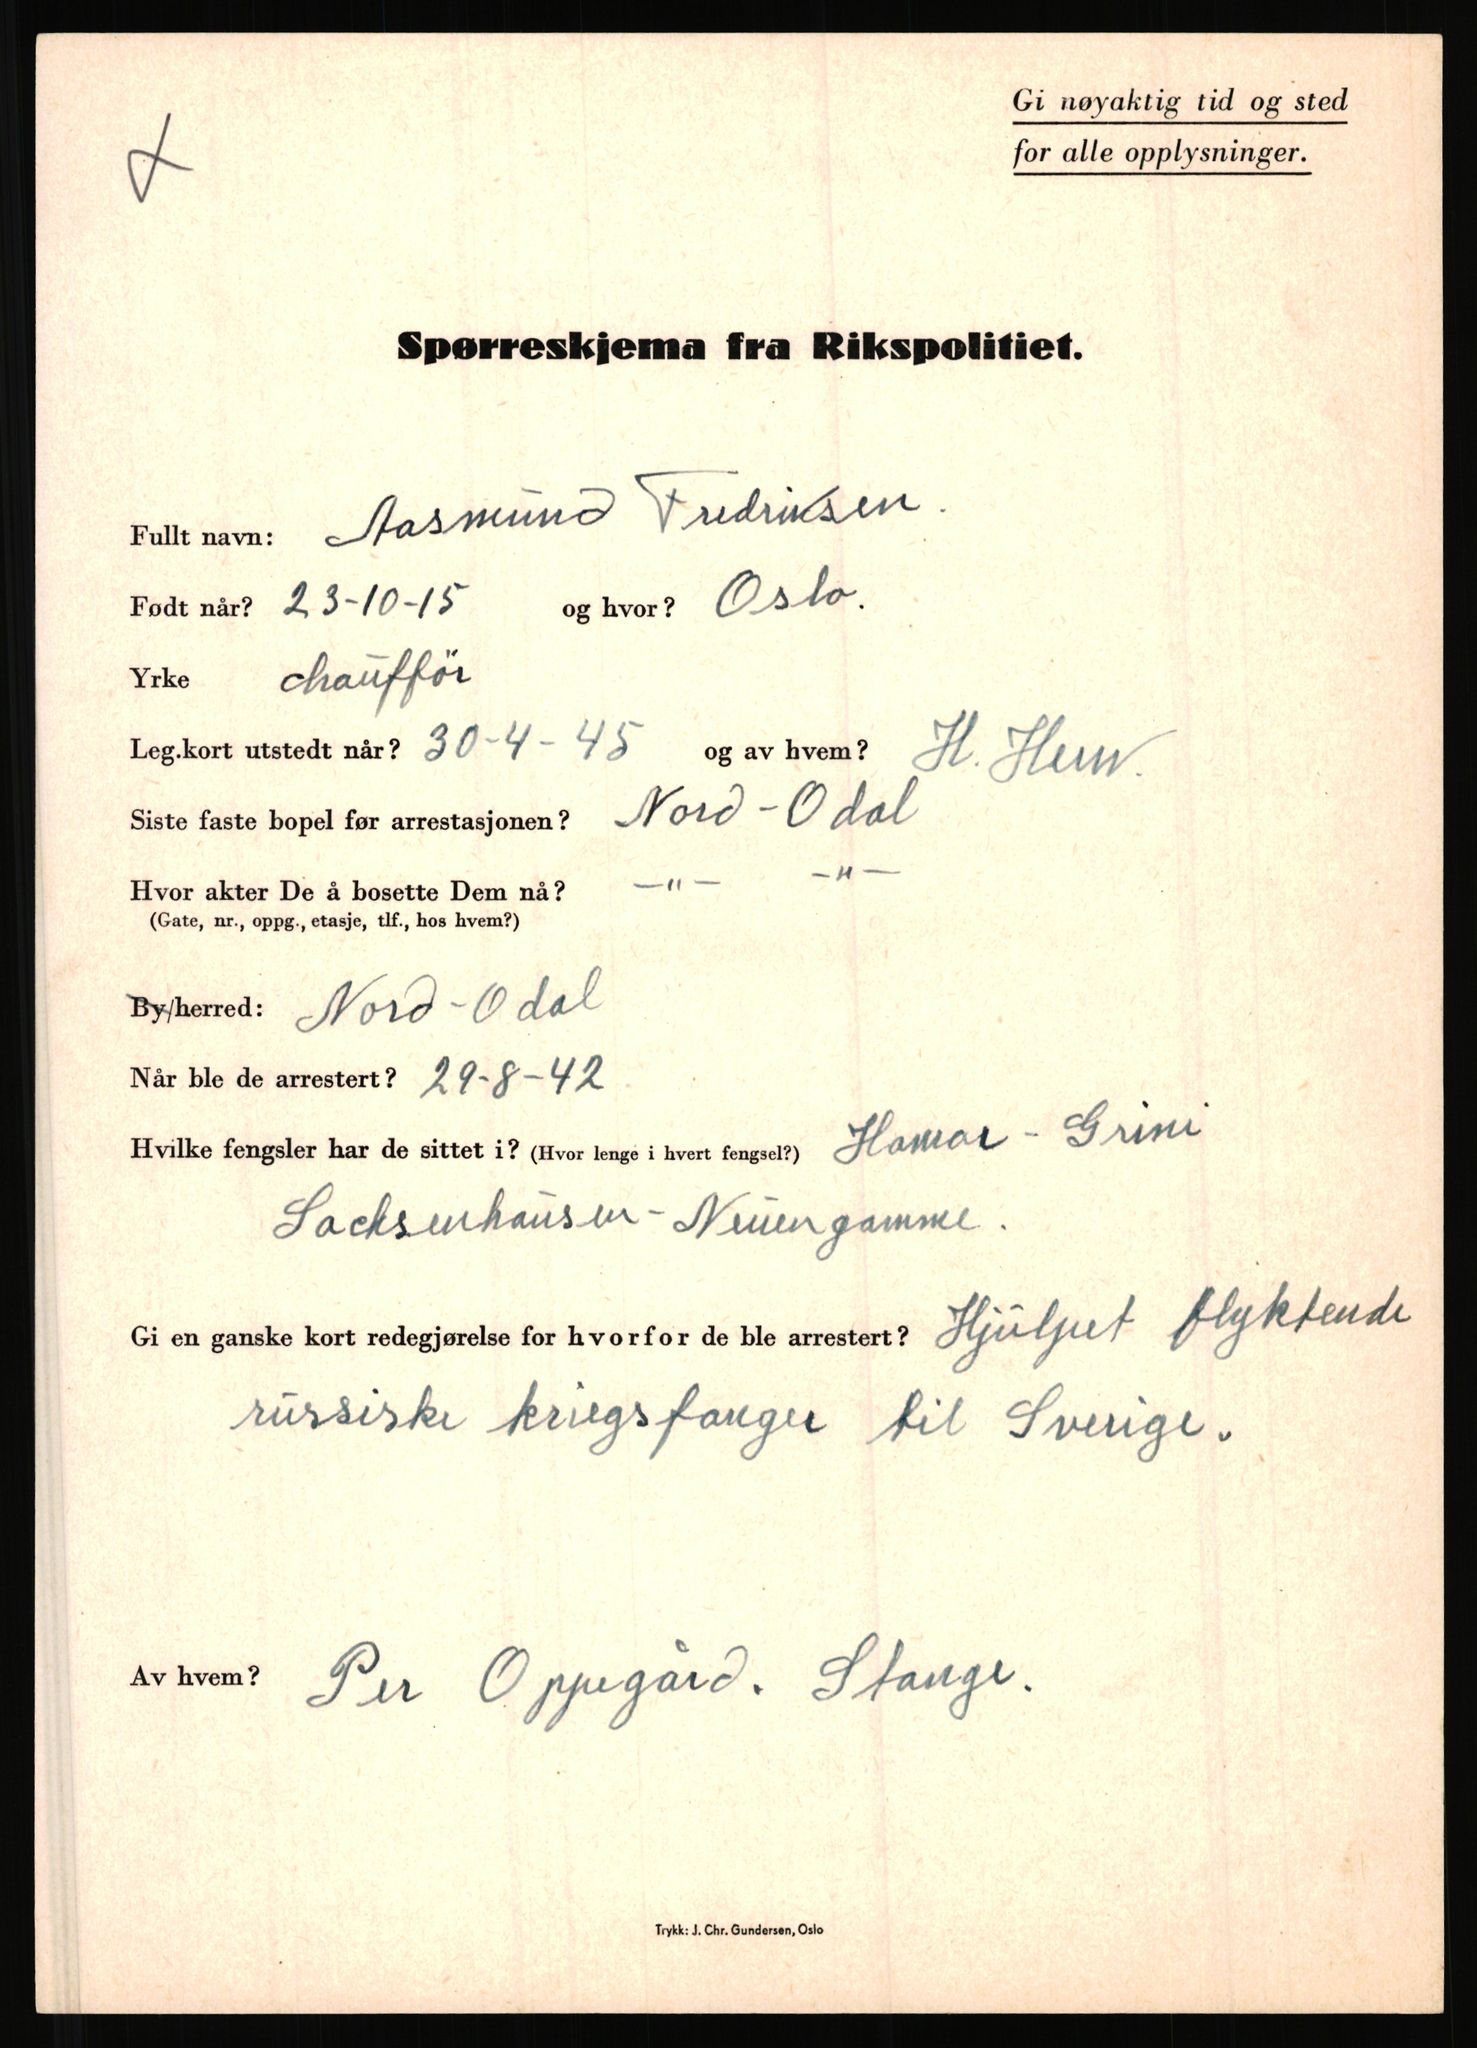 Gi nøyaktig tid og sted
for alle opplysninger.
Spørreskjema fra Rikspolitiet.
Fullt navn: Aasmund Fredriksen.
Født når? 23-10-15 og hvor? Oslo.
Yrke chaufför
Leg.kort utstedt når? 30-4-45 og av hvem? H.
Siste faste bopel før arrestasjonen? Nord-Odal
Hvor akter De å bosette Dem nå? —"— —"—
(Gate, nr., oppg., etasje, tlf., hos hvem?)
By/herred: Nord-Odal
Når ble de arrestert? 29-8-42
Hvilke fengsler har de sittet i? (Hvor lenge i hvert fengsel?) Hamar - Grini
Sachsenhausen - Neuengamme.
Gi en ganske kort redegjørelse for hvorfor de ble arrestert? Hjulpet flyktende
russiske kriegsfanger til Sverige.
Av hvem? Per Oppegård. Stange.
Trykk: J. Chr. Gundersen, Oslo